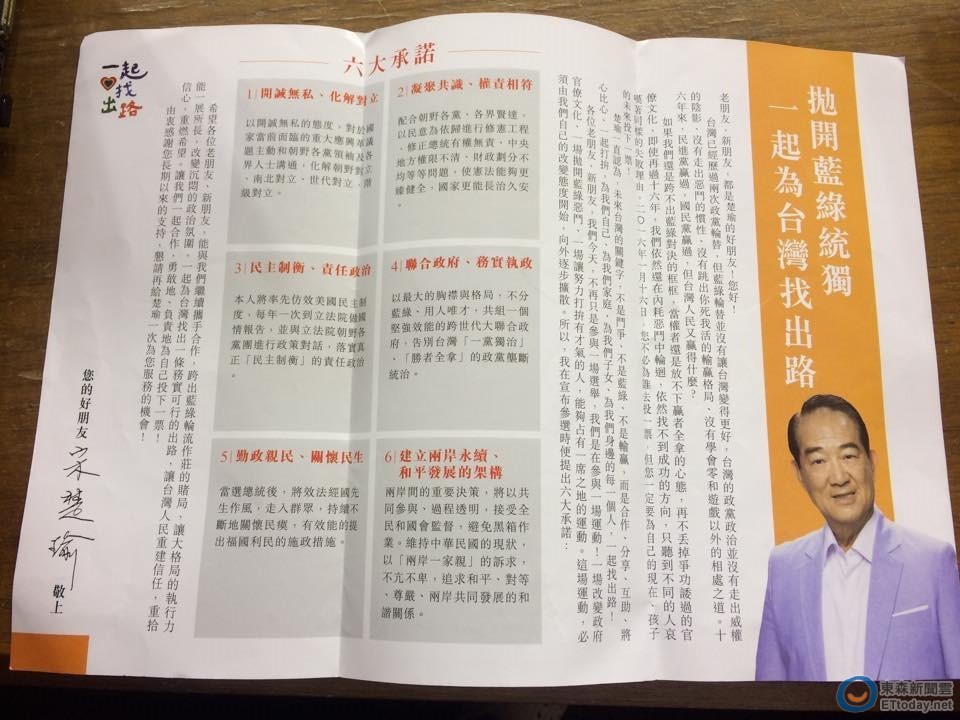 拋開藍綠統獨
一起為台灣找出路
老朋友、新朋友，都是楚瑜的好朋友！您好！
台灣已經歷過兩次政黨輪替，但藍綠輪替並沒有讓台灣變得更好，台灣的政黨政治並沒有走出威權
的陰影、沒有走出惡鬥的慣性、沒有跳出你死我活的輸贏格局、沒有學會零和遊戲以外的相處之道。十
六年來，民進黨贏過，國民黨贏過，但台灣人民又贏得什麼？
如果我們還是跨不出藍綠對決的框框，當權者還是放不下贏者全拿的心態，再不丟掉爭功諉過的官
僚文化，即使再過十六年，我們依然還在內耗惡鬥中輪迴，依然找不到成功的方向，只聽到不同的人哀
嘆著同樣的失敗理由。二〇一六年一月十六日，您不必為誰去投一票，但您一定要為自己的現在、孩子
的未來投下一票！
楚瑜一直認為，未來台灣的關鍵字，不是鬥爭、不是藍綠、不是輸贏，而是合作、分享、互助、將
心比心，一起打拚，為我們自己、為我們家庭、為我們子女、為我們身邊的每一個人，一起找出路！
各位老朋友、新朋友，我們今天，不再只是參與一場選舉，我們是在參與一場運動！一場改變政府
官僚文化、一場拋開藍綠惡鬥、一場讓努力打拚有才氣的人，能夠占有一席之地的運動。這場運動，必
須由我們自己的改變態度開始，向外逐步擴散。所以，我在宣布參選時便提出六大承諾：
六大承諾
1| 開誠無私、化解對立
以開誠無私的態度，對於國
家當前面臨的重大應興革議
題主動和朝野各黨領袖及各
界人士溝通，化解朝野對立
、南北對立、世代對立、階
級對立。
2| 凝聚共識、權責相符
配合朝野各黨，各界賢達，
以民意為依歸進行修憲工程
、修正總統有權無責、中央
地方權限不清、財政劃分不
均等等問題，使憲法能夠更
臻健全，國家更能長治久安
。
3| 民主制衡、責任政治
本人將率先仿效美國民主制
度，每年一次到立法院做國
情報告，並與立法院朝野各
黨團進行政策對話，落實真
正「民主制衡」的責任政治
。
4| 聯合政府、務實執政
以最大的胸襟與格局，不分
藍綠、用人唯才，共組一個
堅強效能的跨世代大聯合政
府，告別台灣「一黨獨治」
、「勝者全拿」的政黨壟斷
統治。
5| 勤政親民、關懷民生
當選總統後，將效法經國先
生作風，走入群眾，持續不
斷地關懷民瘼，有效能的提
出福國利民的施政措施。
6| 建立兩岸永續、
和平發展的架構
兩岸間的重要決策，將以共
同參與、過程透明，接受全
民和國會監督，避免黑箱作
業。維持中華民國的現狀，
以「兩岸一家親」的訴求，
不亢不卑，追求和平、對等
、尊嚴、兩岸共同發展的和
諧關係。
希望各位老朋友、新朋友，能與我們繼續攜手合作，跨出藍綠輪流作莊的賭局，讓大格局的執行力
能一展所長，改變沉悶的政治氛圍，一起為台灣找出一條務實可行的出路，讓台灣人民重建信任，重拾
信心，重燃希望。讓我們一起合作，勇敢地、負責地為自己投下一票！
由衷感謝您長期以來的支持，懇請再給楚瑜一次為您服務的機會！
您的好朋友 宋楚瑜 敬上
一起
找
出路
東森新聞雲
ETtoday.net